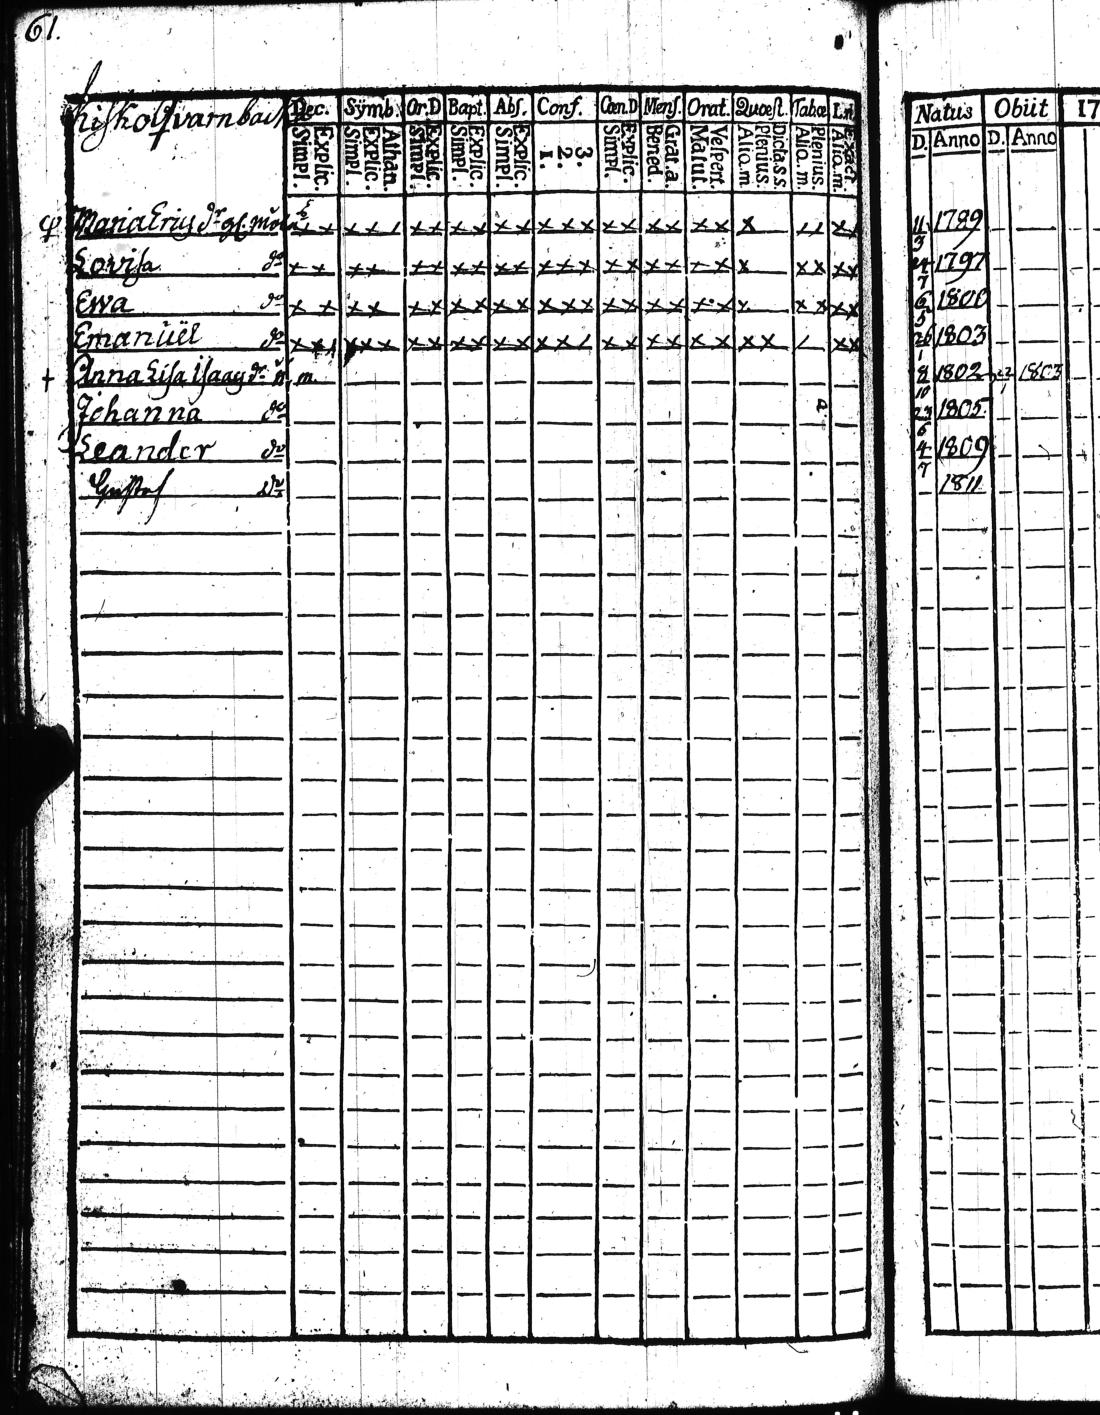 61.
Dec. Symb. Or.D Bapt. Abs. Conf. Cœn.D Mens. Orat. Quœst. Tabœ Natus Obiit 17
Simpl. Explic. Simpl. Explic. Athan. Simpl. Explic. Simpl. Explic. Simpl. Explic. 1. 2. 3. Simpl. Explic. Bened. Grat.a. Matut. Vespert. Aliq.m Plenius. Dicta s.s. Aliq.m Plenius. Aliq.m Exact. D. Anno D. Anno
Maria Ericsdr 11/3 1789
Lovisa do 24/7 1797
Ewa do 6/5 1800
Emanuel do 26/1 1803
† Anna Lisa Isaacsdr 8/10 1802 22/1 1803
Johanna do 23/6 1805
Leander do 4/7 1809
Gustaf do 1811